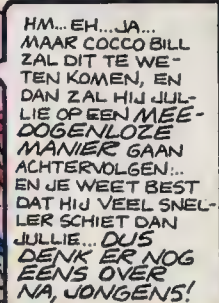 HM... EH... JA...
MAAR COCCO BILL
ZAL DIT TE WE-
TEN KOMEN, EN
DAN ZAL HIJ JUL-
LIE OP EEN MEE-
DOGENLOZE
MANIER GAAN
ACHTERVOLGEN...
EN JE WEET BEST
DAT HIJ VEEL SNEL-
LER SCHIET DAN
JULLIE... DUS
DENK ER NOG
EENS OVER
NA, JONGENS!